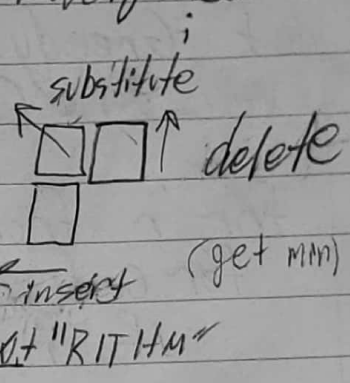 ;
substitute
delete
(get min)
insert
at "RITHM"